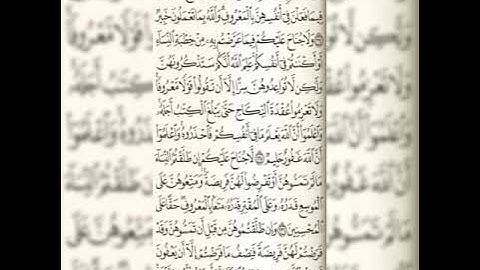 فِيمَا فَعَلْنَ فِىٓ أَنفُسِهِنَّ بِٱلْمَعْرُوفِ وَٱللَّهُ بِمَا تَعْمَلُونَ خَبِيرٌ
وَلَا جُنَاحَ عَلَيْكُمْ فِيمَا عَرَّضْتُم بِهِۦ مِنْ خِطْبَةِ ٱلنِّسَآءِ
أَوْ أَكْنَنتُمْ فِىٓ أَنفُسِكُمْ عَلِمَ ٱللَّهُ أَنَّكُمْ سَتَذْكُرُونَهُنَّ
وَلَٰكِن لَّا تُوَاعِدُوهُنَّ سِرًّا إِلَّآ أَن تَقُولُوا۟ قَوْلًا مَّعْرُوفًا
وَلَا تَعْزِمُوا۟ عُقْدَةَ ٱلنِّكَاحِ حَتَّىٰ يَبْلُغَ ٱلْكِتَٰبُ أَجَلَهُۥ
وَٱعْلَمُوٓا۟ أَنَّ ٱللَّهَ يَعْلَمُ مَا فِىٓ أَنفُسِكُمْ فَٱحْذَرُوهُ وَٱعْلَمُوٓا۟
أَنَّ ٱللَّهَ غَفُورٌ حَلِيمٌ لَّا جُنَاحَ عَلَيْكُمْ إِن طَلَّقْتُمُ ٱلنِّسَآءَ
مَا لَمْ تَمَسُّوهُنَّ أَوْ تَفْرِضُوا۟ لَهُنَّ فَرِيضَةً وَمَتِّعُوهُنَّ عَلَى
ٱلْمُوسِعِ قَدَرُهُۥ وَعَلَى ٱلْمُقْتِرِ قَدَرُهُۥ مَتَٰعًۢا بِٱلْمَعْرُوفِ حَقًّا عَلَى
ٱلْمُحْسِنِينَ وَإِن طَلَّقْتُمُوهُنَّ مِن قَبْلِ أَن تَمَسُّوهُنَّ وَقَدْ
فَرَضْتُمْ لَهُنَّ فَرِيضَةً فَنِصْفُ مَا فَرَضْتُمْ إِلَّآ أَن يَعْفُونَ